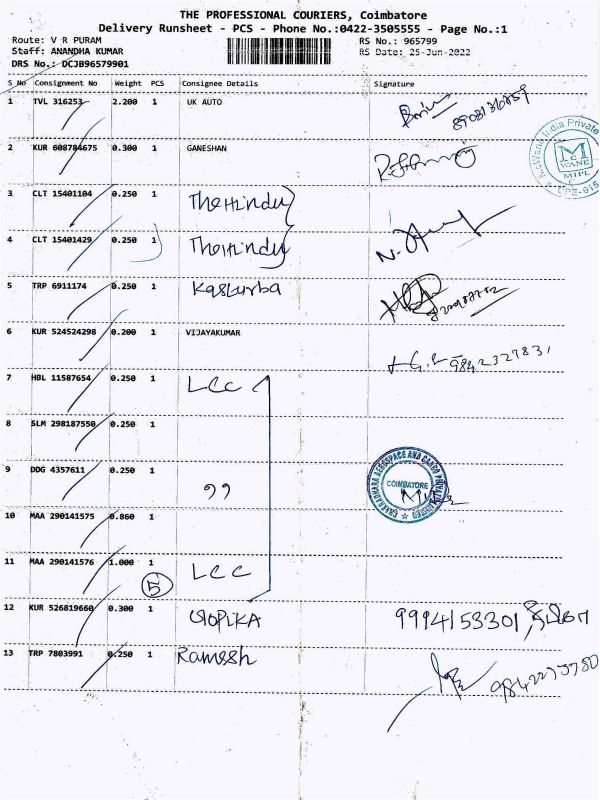 THE PROFESSIONAL COURIERS, Coimbatore
Delivery Runsheet - PCS - Phone No.:0422-3505555 - Page No.:1
Route: V R PURAM RS No.: 965799
Staff: ANANDHA KUMAR RS Date: 25-Jun-2022
DRS No.: DCJB96579901
S_No Consignment No Weight PCS Consignee Details Signature
1 TVL 316253 2.200 1 UK AUTO
2 KUR 608784675 0.300 1 GANESHAN
3 CLT 15401104 0.250 1 The Hindu
4 CLT 15401429 0.250 1 The Hindu
5 TRP 6911174 0.250 1 Kasturba
6 KUR 524524298 0.200 1 VIJAYAKUMAR
9842327831
7 HBL 11587654 0.250 1 LCC
8 SLM 298187550 0.250 1
9 DDG 4357611 0.250 1 "
COIMBATORE
10 MAA 290141575 0.860 1
11 MAA 290141576 1.000 1 LCC
5
12 KUR 526819660 0.300 1 GOPIKA 9994153301
13 TRP 7803991 0.250 1 Ramesh
MIPL